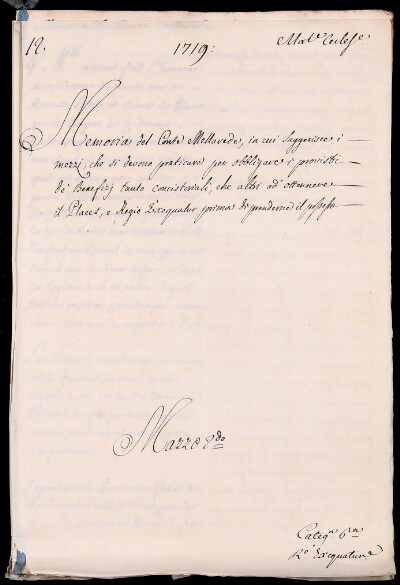 12.
1719:
Mat.e Eccles.e
Memoria del Conte Mellarede, in cui suggerisce i
mezzi, che si devono praticare per obbligare i provisti
di Benefizj tanto concistoriali, che altri ad ottennere
il Placet, e Regio Exequatur prima di prenderne il possesso
Mazzo 2.do
Categ.a 6.ta
R.o Exequatur